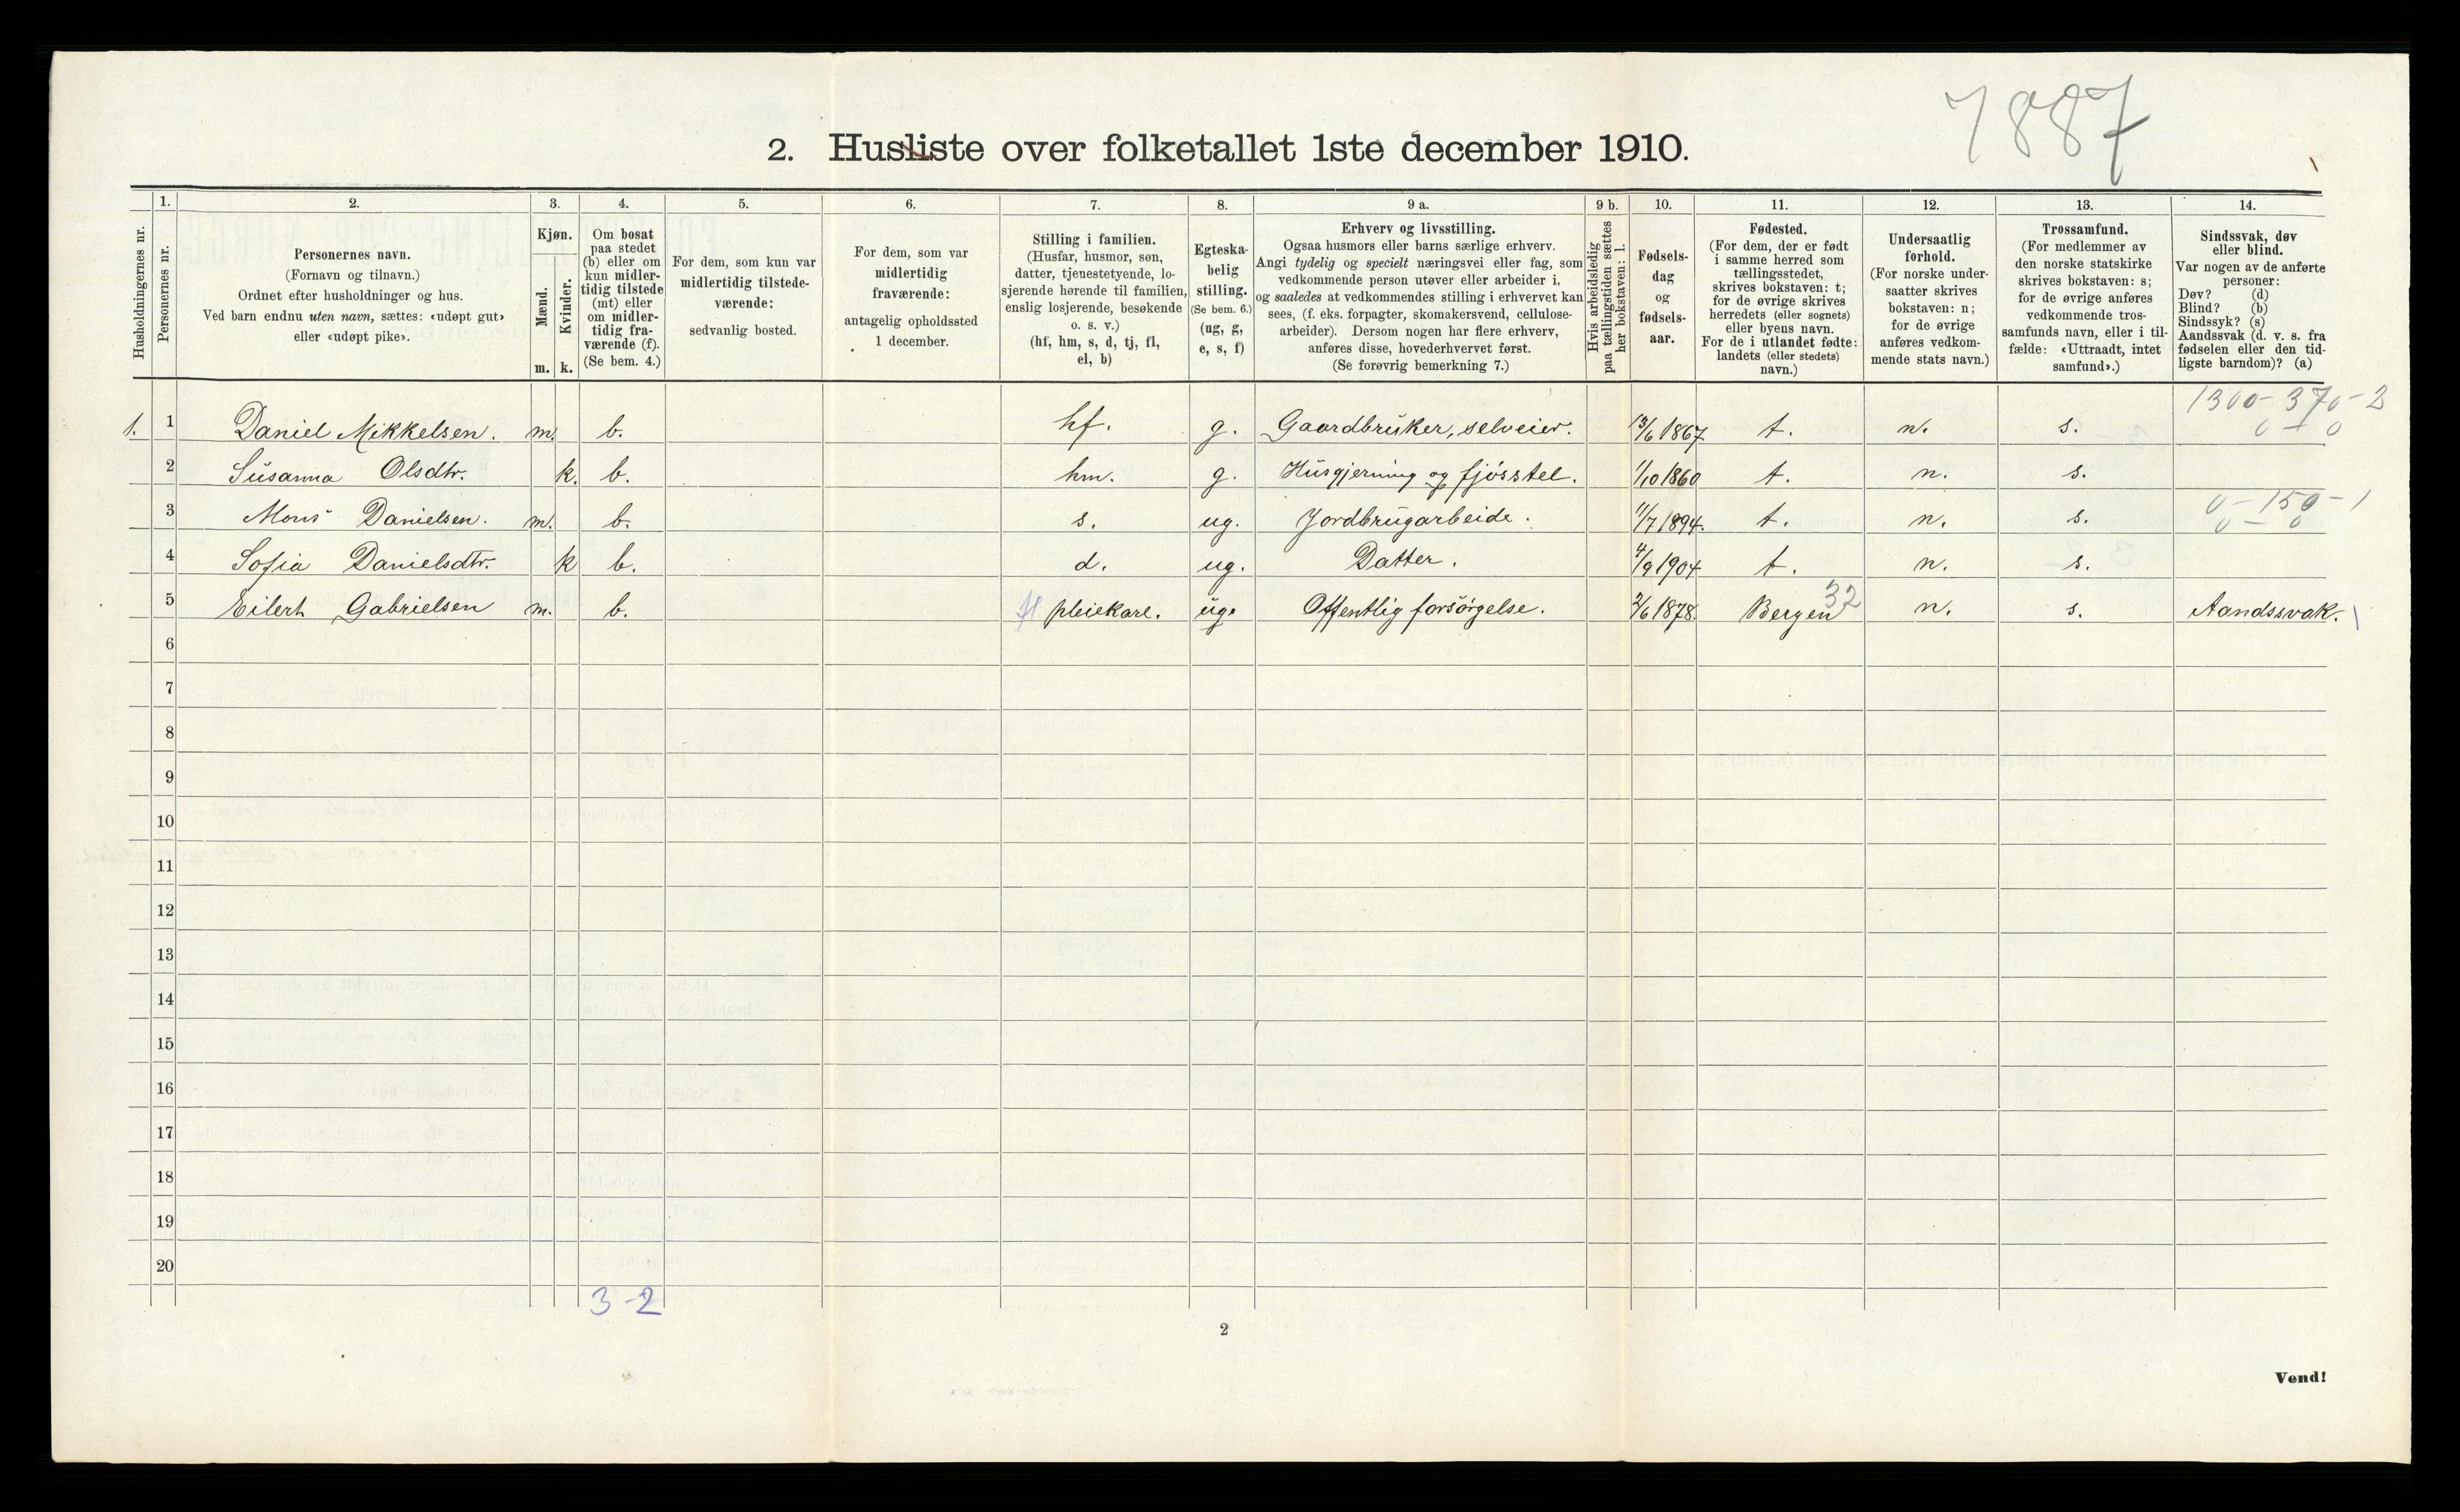 7887
2. Husliste over folketallet 1ste december 1910.
1. 2. 3. 4. 5. 6. 7. 8. 9 a. 9 b. 10. 11. 12. 13. 14.
Husholdningernes nr.
Personernes nr.
Personernes navn.
(Fornavn og tilnavn.)
Ordnet efter husholdninger og hus.
Ved barn endnu uten navn, sættes: «udøpt gut»
eller «udøpt pike».
Kjøn.
Mænd.
Kvinder.
m. k.
Om bosat
paa stedet
(b) eller om
kun midler-
tidig tilstede
(mt) eller
om midler-
tidig fra-
værende (f).
(Se bem. 4.)
For dem, som kun var
midlertidig tilstede-
værende:
sedvanlig bosted.
For dem, som var
midlertidig
fraværende:
antagelig opholdssted
1 december.
Stilling i familien.
(Husfar, husmor, søn,
datter, tjenestetyende, lo-
sjerende hørende til familien,
enslig losjerende, besøkende
o. s. v.)
(hf, hm, s, d, tj, fl,
el, b)
Egteska-
belig
stilling.
(Se bem. 6.)
(ug, g,
e, s, f)
Erhverv og livsstilling.
Ogsaa husmors eller barns særlige erhverv.
Angi tydelig og specielt næringsvei eller fag, som
vedkommende person utøver eller arbeider i,
og saaledes at vedkommendes stilling i erhvervet kan
sees, (f. eks. forpagter, skomakersvend, cellulose-
arbeider). Dersom nogen har flere erhverv,
anføres disse, hovederhvervet først.
(Se forøvrig bemerkning 7.)
Hvis arbeidsledig
paa tællingstiden sættes
her bokstaven: l.
Fødsels-
dag
og
fødsels-
aar.
Fødested.
(For dem, der er født
i samme herred som
tællingsstedet,
skrives bokstaven: t;
for de øvrige skrives
herredets (eller sognets)
eller byens navn.
For de i utlandet fødte:
landets (eller stedets)
navn.)
Undersaatlig
forhold.
(For norske under-
saatter skrives
bokstaven: n;
for de øvrige
anføres vedkom-
mende stats navn.)
Trossamfund.
(For medlemmer av
den norske statskirke
skrives bokstaven: s;
for de øvrige anføres
vedkommende tros-
samfunds navn, eller i til-
fælde: «Uttraadt, intet
samfund».)
Sindssvak, døv
eller blind.
Var nogen av de anførte
personer:
Døv? (d)
Blind? (b)
Sindssyk? (s)
Aandssvak (d. v. s. fra
fødselen eller den tid-
ligste barndom)? (a)
1300-370-2
0 - 0
1. 1 Daniel Mikkelsen. m. b. hf. g. Gaardbruker, selveier. 13/6 1867 t. n. s.
2 Susanna Olsdtr. k. b. hm. g. Husgjerning og fjösstel. 1/10 1860 t. n. s.
3 Mons Danielsen. m. b. s. ug. Jordbrugarbeide. 11/7 1894. t. n. s. 0-150-1
0 - 0
4 Sofia Danielsdtr. k b. d. ug. Datter. 4/9 1904 t. n. s.
5 Eilert Gabrielsen m. b. pleiekare. ug. Offentlig forsörgelse. 2/6 1878. Bergen 32 n. s. Aandssvak.
6
7
8
9
10
11
12
13
14
15
16
17
18
19
20
3-2
2
Vend!